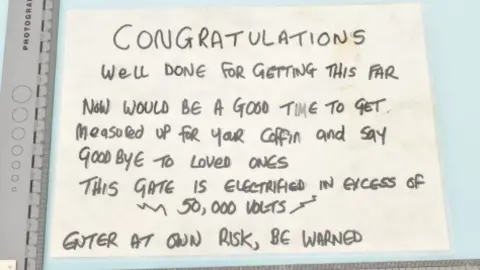 PHOTOGRA
CONGRATULATIONS
WELL DONE FOR GETTING THIS FAR
NOW WOULD BE A GOOD TIME TO GET
measured up for your coffin and say
GOODBYE TO LOVED ONES
THIS GATE IS ELECTRIFIED IN EXCESS OF
50,000 VOLTS
ENTER AT OWN RISK, BE WARNED